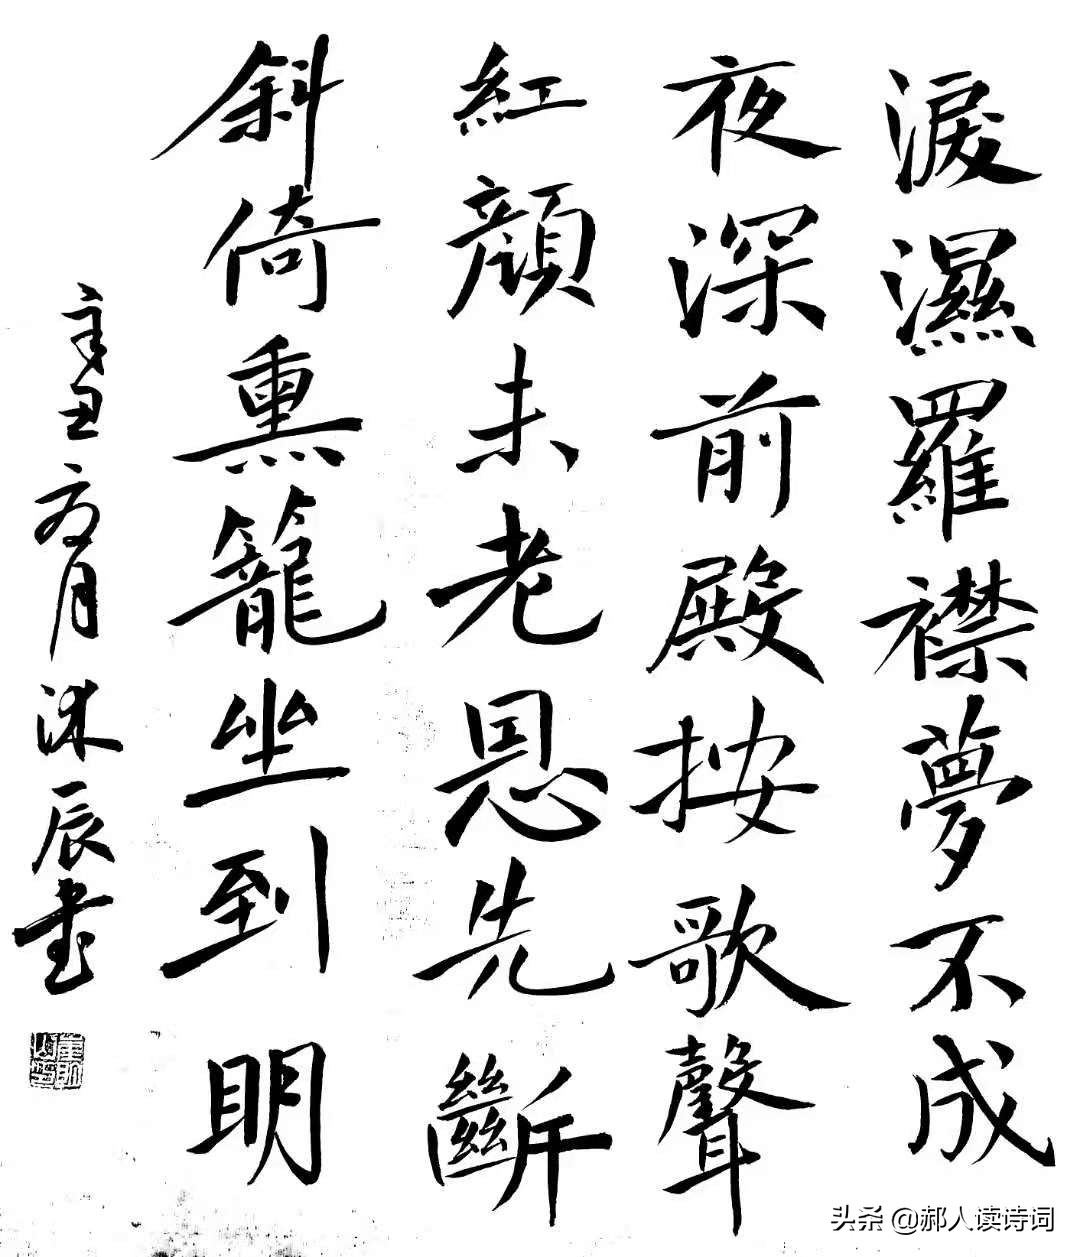 淚濕羅襟夢不成
夜深前殿按歌聲
紅顏未老恩先斷
斜倚熏籠坐到明
辛丑 月沐辰書
头条 @郝人读诗词